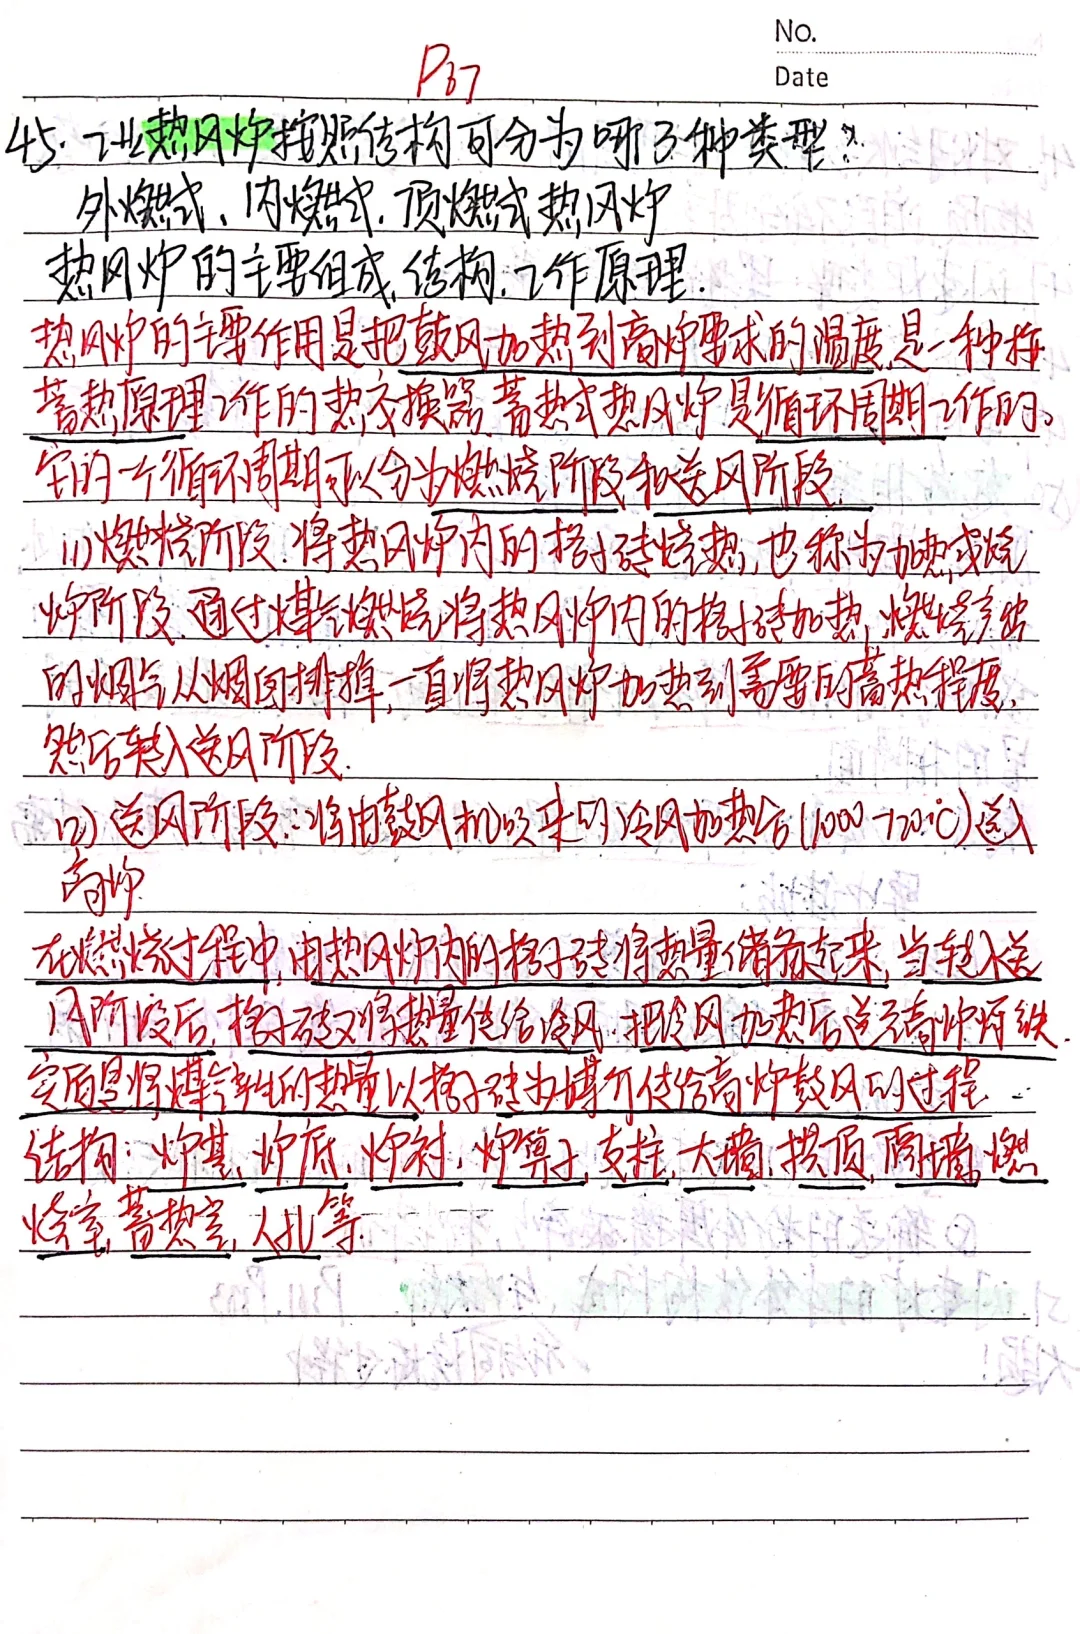 No.
Date
P67
45. 工业热风炉按照结构可分为哪3种类型?
外燃式、内燃式、顶燃式热风炉
热风炉的主要组成、结构、工作原理.
热风炉的主要作用是把鼓风加热到高炉要求的温度,是一种按
蓄热原理工作的热交换器,蓄热式热风炉是循环周期工作的。
它的一个循环周期可以分为燃烧阶段和送风阶段.
(1)燃烧阶段:将热风炉内的格子砖烧热,也称为加热或烧
炉阶段.通过煤气燃烧将热风炉内的格子砖加热,燃烧产出
的烟气从烟囱排掉,一直将热风炉加热到需要的蓄热程度,
然后转入送风阶段.
(2)送风阶段:将由鼓风机吹来的冷风加热后(1000~1200℃)送入
高炉.
在燃烧过程中,由热风炉内的格子砖将热量储备起来,当转入送
风阶段后,格子砖又将热量传给冷风,把冷风加热后送至高炉炼铁.
实质是将煤气产生的热量以格子砖为媒介传给高炉鼓风的过程
结构:炉基,炉底,炉衬,炉箅子,支柱,大墙,拱顶,隔墙,燃
烧室,蓄热室,人孔等.